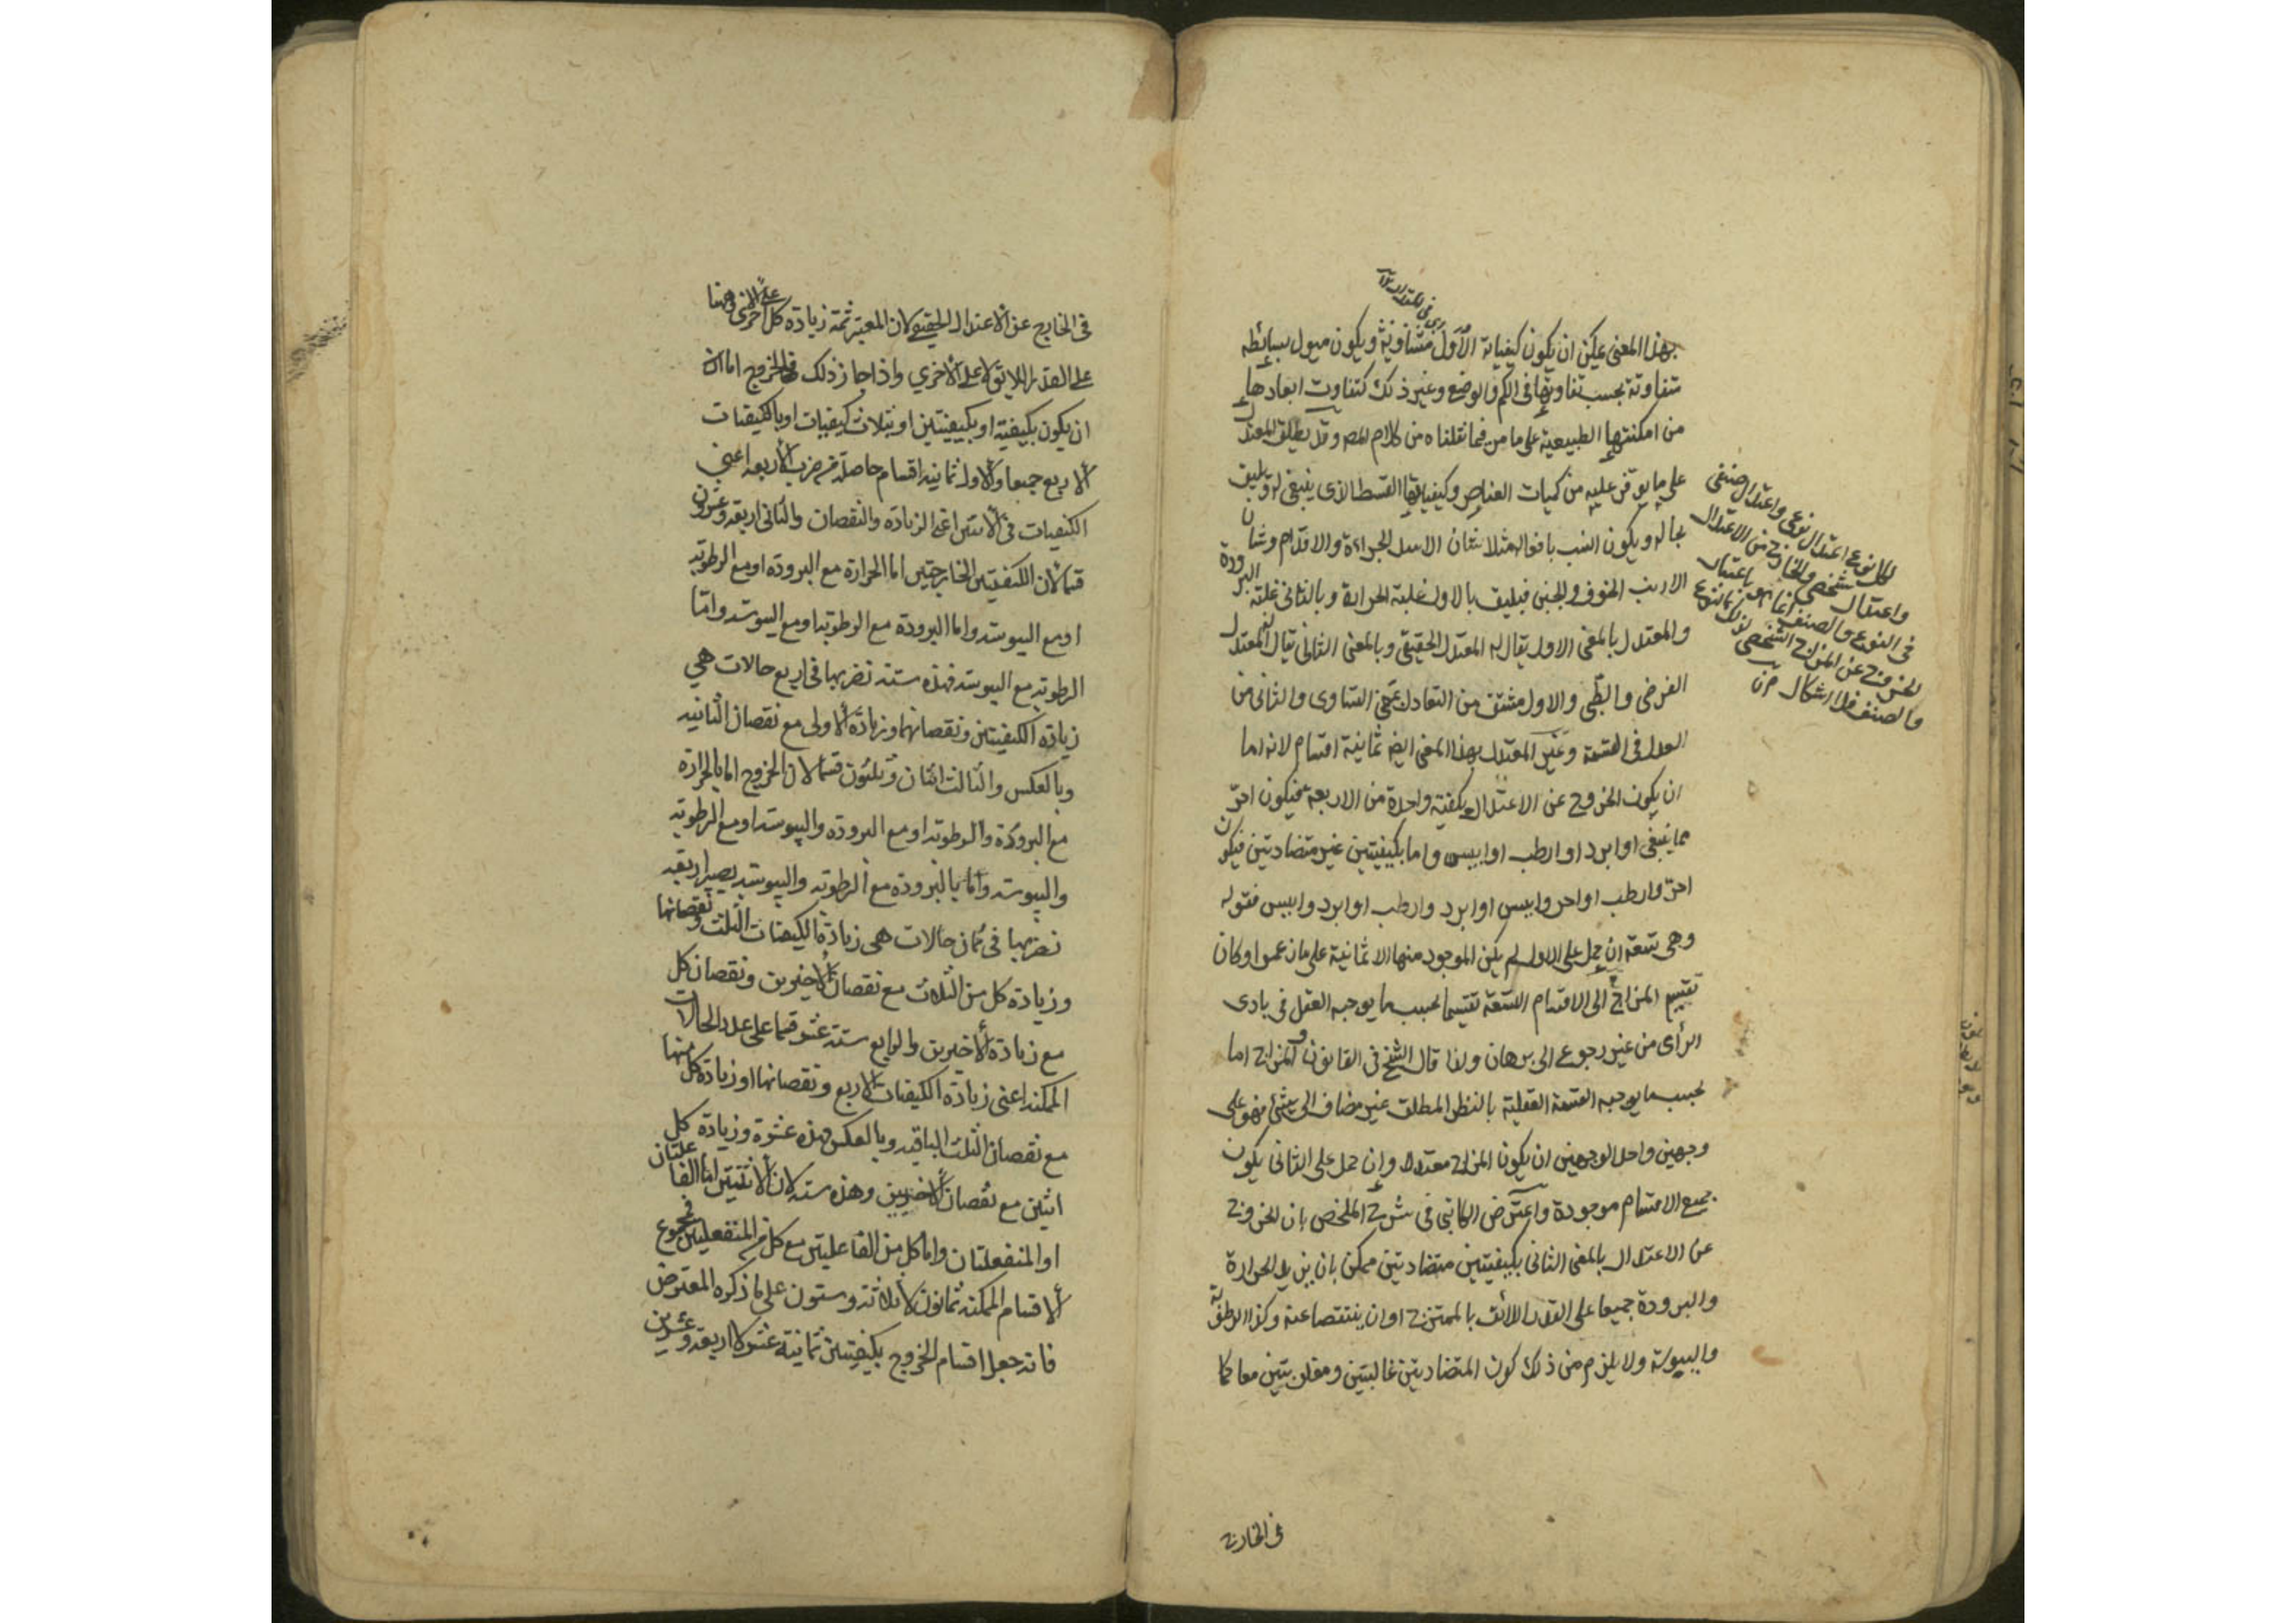 بهذا المعنى يمكن ان يكون كيفياته الأول متساوية ويكون ميول بسائطه
متفاوتة بحسب تفاوتها فى الكم والوضع وغير ذلك كتفاوت ابعادها
من امكنتها الطبيعية على ما مر فيما نقلناه من كلام المص وقد يطلق المعتدل
على ما يوفر عليه من كميات العناصر وكيفياتها القسط الذى ينبغى له ويليق
بحاله ويكون انسب بافعاله مثلا شان الاسد الجراءة والاقدام وشان
الارنب الخوف والجبن فيليق بالاول غلبة الحرارة وبالثانى غلبة البرودة
والمعتدل بالمعنى الاول يقال له المعتدل الحقيقى وبالمعنى الثانى يقال له المعتدل
الفرضى والطبى والاول مشتق من التعادل بمعنى التساوى والثانى من
العدل فى القسمة وغير المعتدل بهذا المعنى ايض ثمانية اقسام لانه اما
ان يكون الخروج عن الاعتدال بكيفية واحدة من الاربعة فيكون احر
مما ينبغى او ابرد او ارطب او ايبس واما بكيفيتين غير متضادتين فيكون
احر وارطب او احر وايبس او ابرد وارطب او ابرد وايبس فقوله
وهى تسعة ان حمل على الاول لم يكن الموجود منها الا ثمانية على ما زعموا وكان
تقسيم المزاج الى الاقسام التسعة تقسيما بحسب ما يوجبه العقل فى بادى
الرأى من غير رجوع الى برهان ولذا قال الشيخ فى القانون والمزاج اما
بحسب ما يوجبه القسمة العقلية بالنظر المطلق غير مضاف الى شئ فهو على
وجهين واحد الوجهين ان يكون المزاج معتدلا وان حمل على الثانى يكون
جميع الاقسام موجودة واعترض الكاتبى فى شرح الملخص بان الخروج
عن الاعتدال بالمعنى الثانى بكيفيتين متضادتين ممكن بان يزيد الحرارة
والبرودة جميعا على القدر اللائق بالممتزج او ان ينتقصا عنه وكذا الرطوبة
واليبوسة ولا يلزم من ذلك كون المتضادتين غالبتين ومغلوبتين معا كما
فى الخارج
لكل نوع اعتدال نوعى واعتدال صنفى
واعتدال شخصى والخارج من الاعتدال
فى النوع والصنف انما هو باعتبار
الخروج عن المزاج الشخصى لذلك النوع
والصنف فلا اشكال
فى الخارج عن الاعتدال الحقيقى لان المعتبر ثمة زيادة كل على الاخرى وههنا
على القدر اللائق لا على الاخرى واذا جاز ذلك فالخروج اما ان
ان يكون بكيفية او بكيفيتين او بثلاث كيفيات او بالكيفيات
الاربع جميعا والاول ثمانية اقسام حاصلة من ضرب الأربعة اعنى
الكيفيات فى الاثنين اعنى الزيادة والنقصان والثانى اربعة وعشرون
قسما لان الكيفيتين الخارجتين اما الحرارة مع البرودة او مع الرطوبة
او مع اليبوسة واما البرودة مع الرطوبة او مع اليبوسة واما
الرطوبة مع اليبوسة فهذه ستة نضربها فى اربع حالات هى
زيادة الكيفيتين ونقصانهما وزيادة الاولى مع نقصان الثانية
وبالعكس والثالث اثنان وثلثون قسما لان الخروج اما بالحرارة
مع البرودة والرطوبة او مع البرودة واليبوسة او مع الرطوبة
واليبوسة واما بالبرودة مع الرطوبة واليبوسة يصير اربعة
نضربها فى ثمان حالات هى زيادة الكيفيات الثلث ونقصانها
وزيادة كل من الثلاث مع نقصان الاخيرين ونقصان كل
مع زيادة الاخيرين والرابع ستة عشر قسما على عدد الحالات
الممكنة اعنى زيادة الكيفيات الاربع ونقصانها او زيادة كل منها
مع نقصان الثلث الباقية وبالعكس فهذه عشرة وزيادة كل
اثنين مع نقصان الاخيرين وهذه ستة لان الاثنين اما الفاعلتان
او المنفعلتان واما كل من الفاعليتين مع كل من المنفعليتين فمجموع
الاقسام الممكنة ثمانون لا ثلاثة وستون على ما ذكره المعترض
فانه جعل اقسام الخروج بكيفيتين ثمانية عشر لا اربعة وعشرين